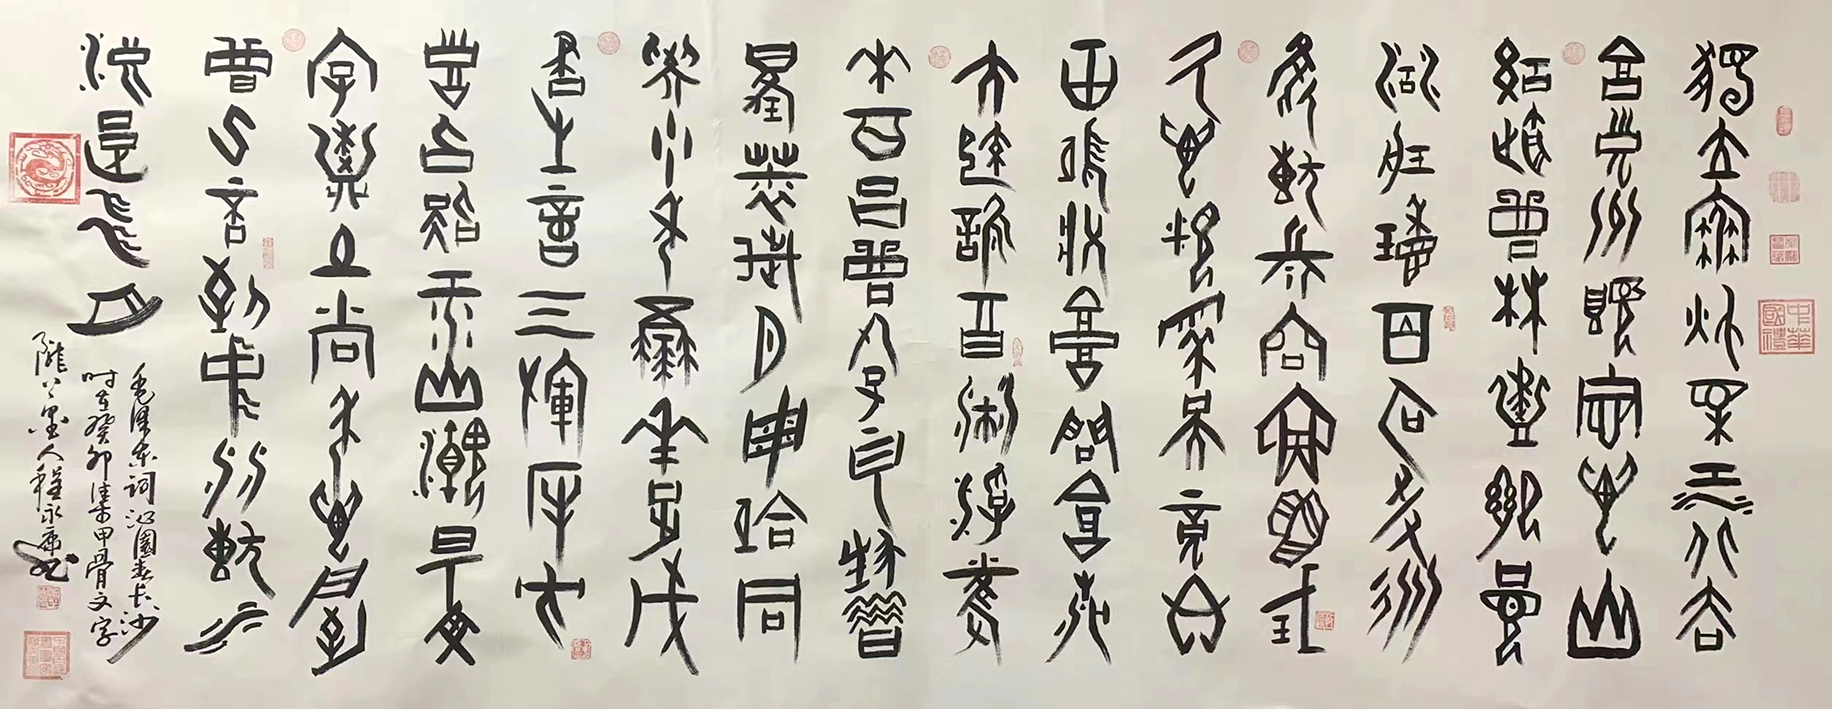 獨立寒秋湘江北去
橘子洲頭看萬山
紅遍層林盡染漫
江碧透百舸爭流
鷹擊長空魚翔淺
底萬類霜天競自
由悵寥廓問蒼茫
大地誰主沉浮攜
來百侶曾游憶往昔
崢嶸歲月稠恰同
學少年風華正茂
書生意氣揮斥方
遒指點江山激揚文
字糞土當年萬戶侯
曾記否到中流擊水
浪遏飛舟
毛澤東詞沁園春長沙
时在癸卯甲骨文字
隴上墨人程永
中華國禮